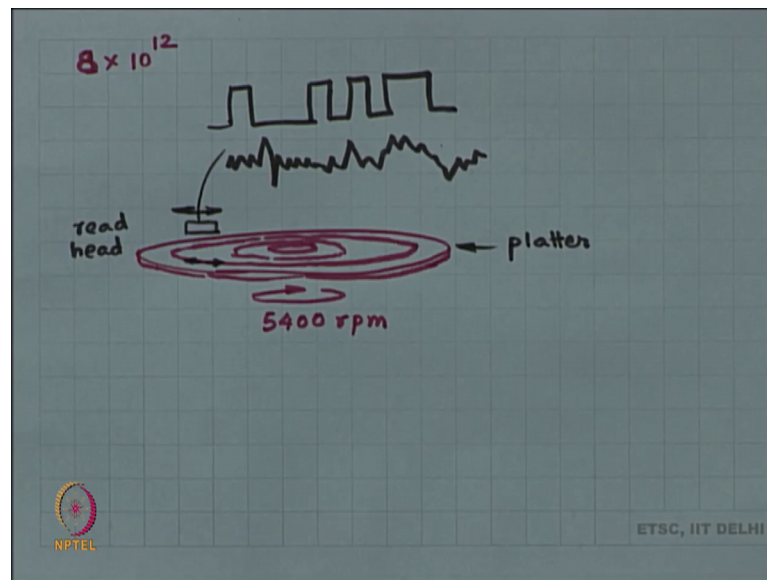 8 × 10¹²
read
head
platter
5400 rpm
NPTEL
ETSC, IIT DELHI